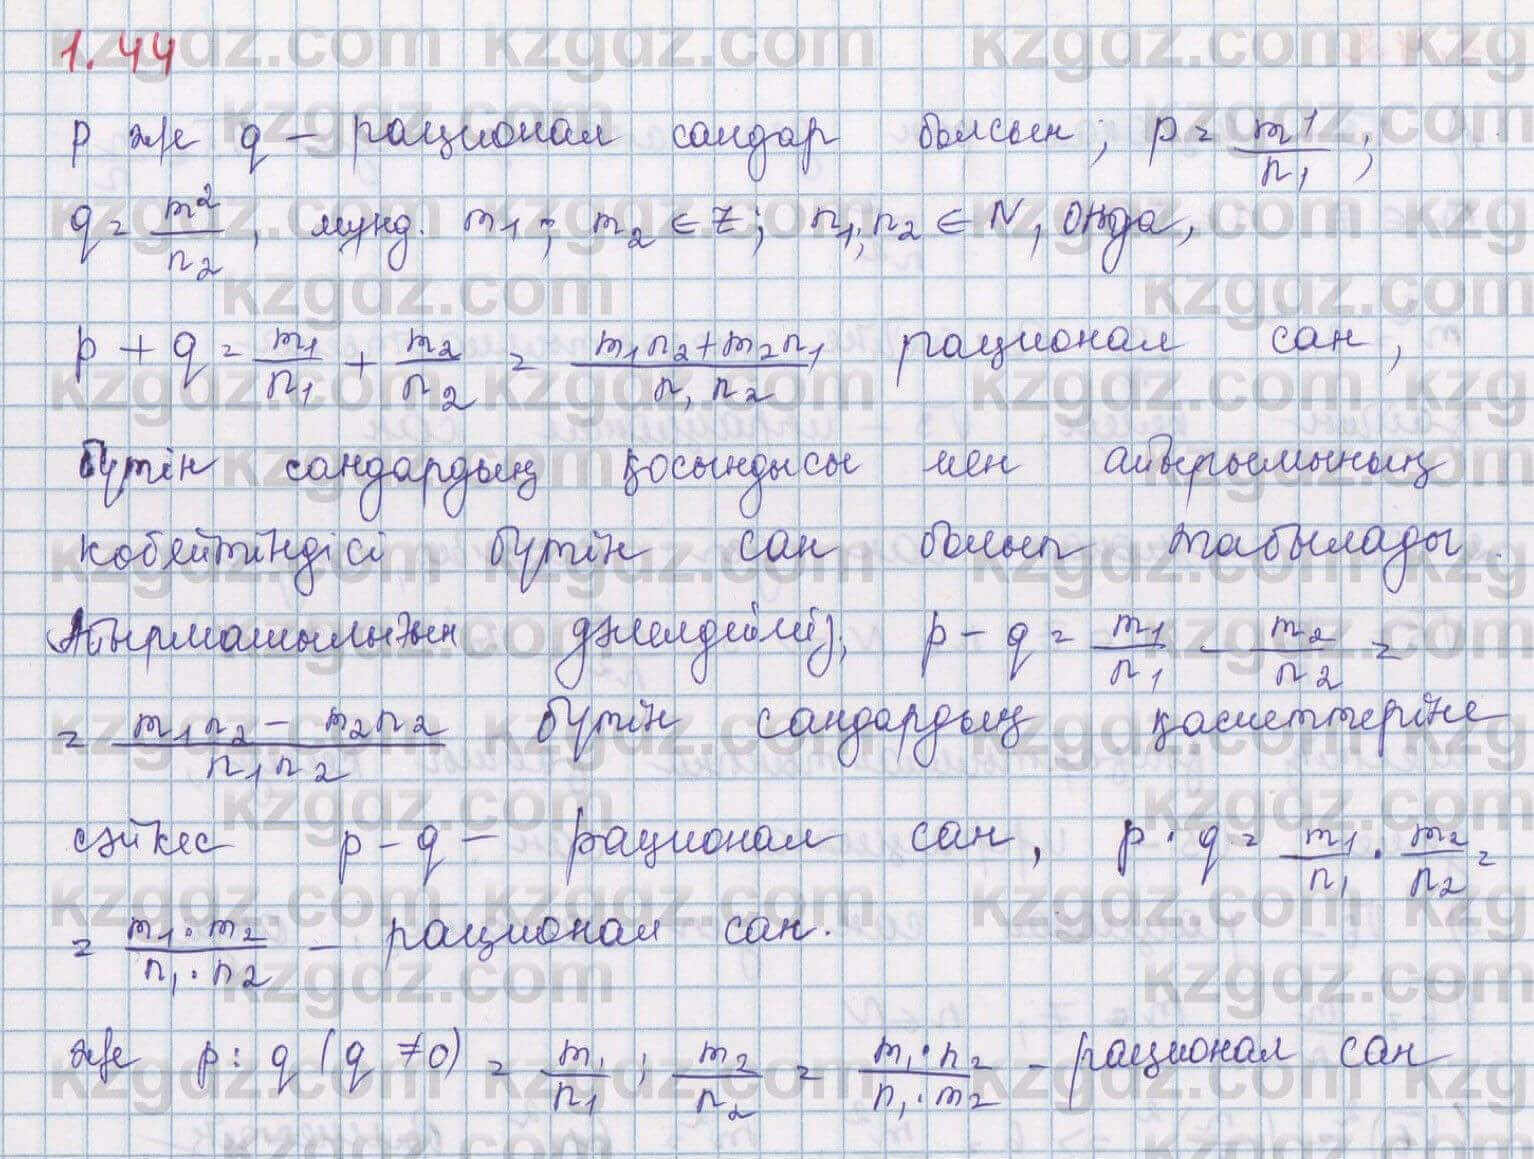 1.44
p және q – рационал сандар болсын; p = m1/n1;
q = m2/n2, мұнд. m1; m2 ∈ Z; n1; n2 ∈ N, онда,
p + q = m1/n1 + m2/n2 = (m1n2+m2n1)/(n1n2) рационал сан,
бүтін сандардың қосындысы мен айырымының
көбейтіндісі бүтін сан болып табылады.
Айырмашылығын дәлелдейміз; p – q = m1/n1 – m2/n2 =
= (m1n2 – m2n2)/(n1n2) бүтін сандардың қасиеттеріне
сәйкес p – q – рационал сан, p · q = m1/n1 · m2/n2 =
= (m1·m2)/(n1·n2) – рационал сан.
және p : q (q ≠ 0) = m1/n1 : m2/n2 = (m1·n2)/(n1·m2) – рационал сан
kzgdz.com